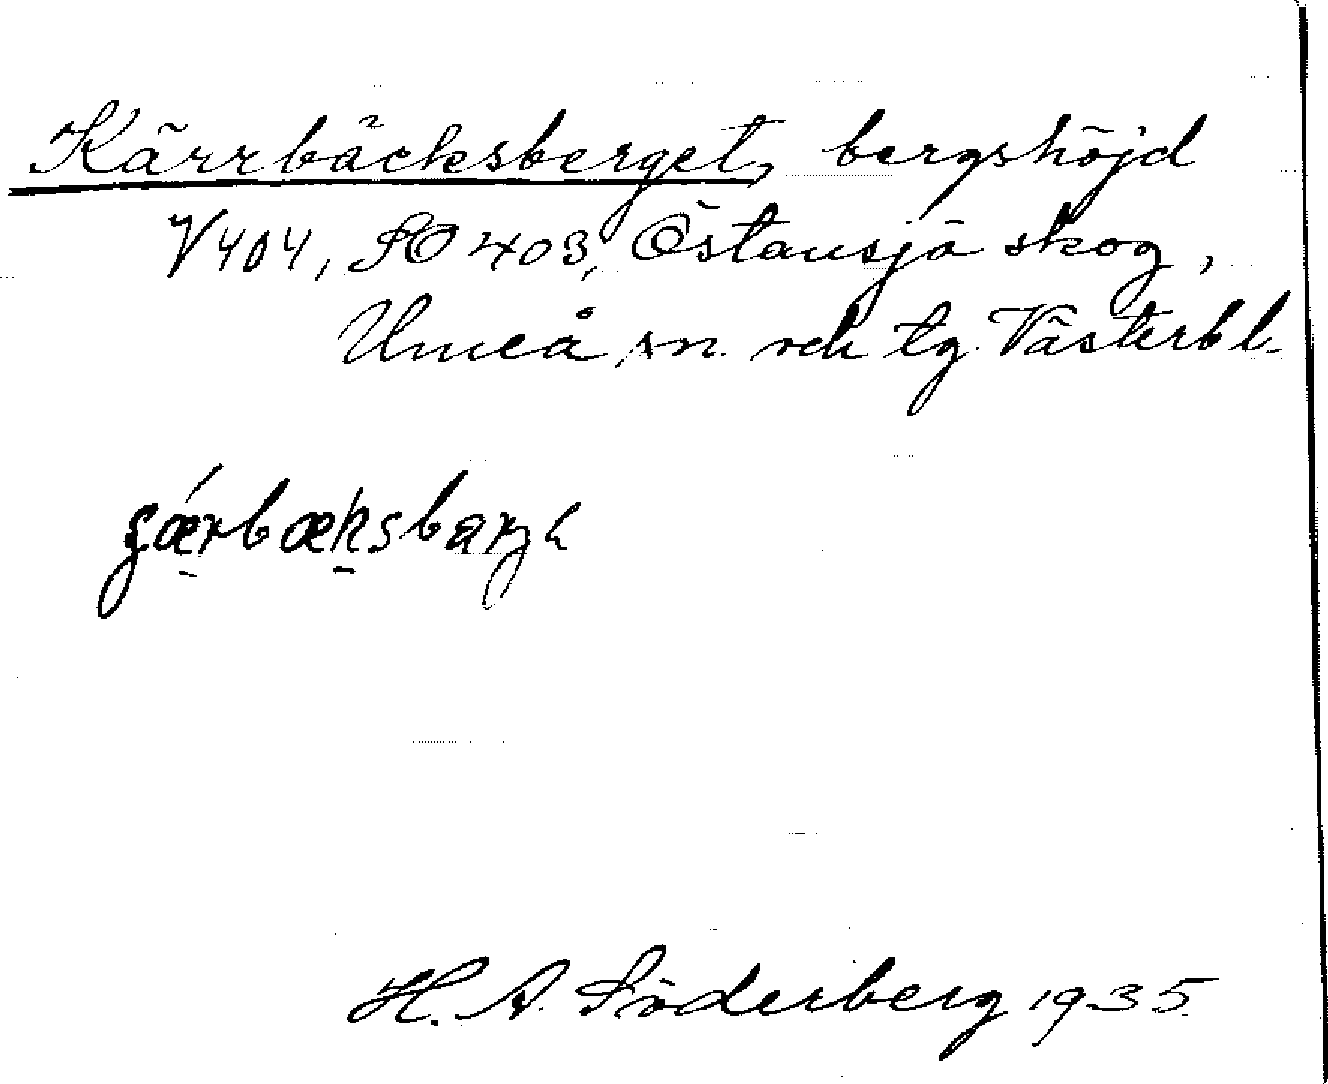 Kärrbäcksberget, bergshöjd
V 404, SO 403, Östansjö skog,
Umeå sn. och tg. Västerbl.
H. A. Söderberg 1935.